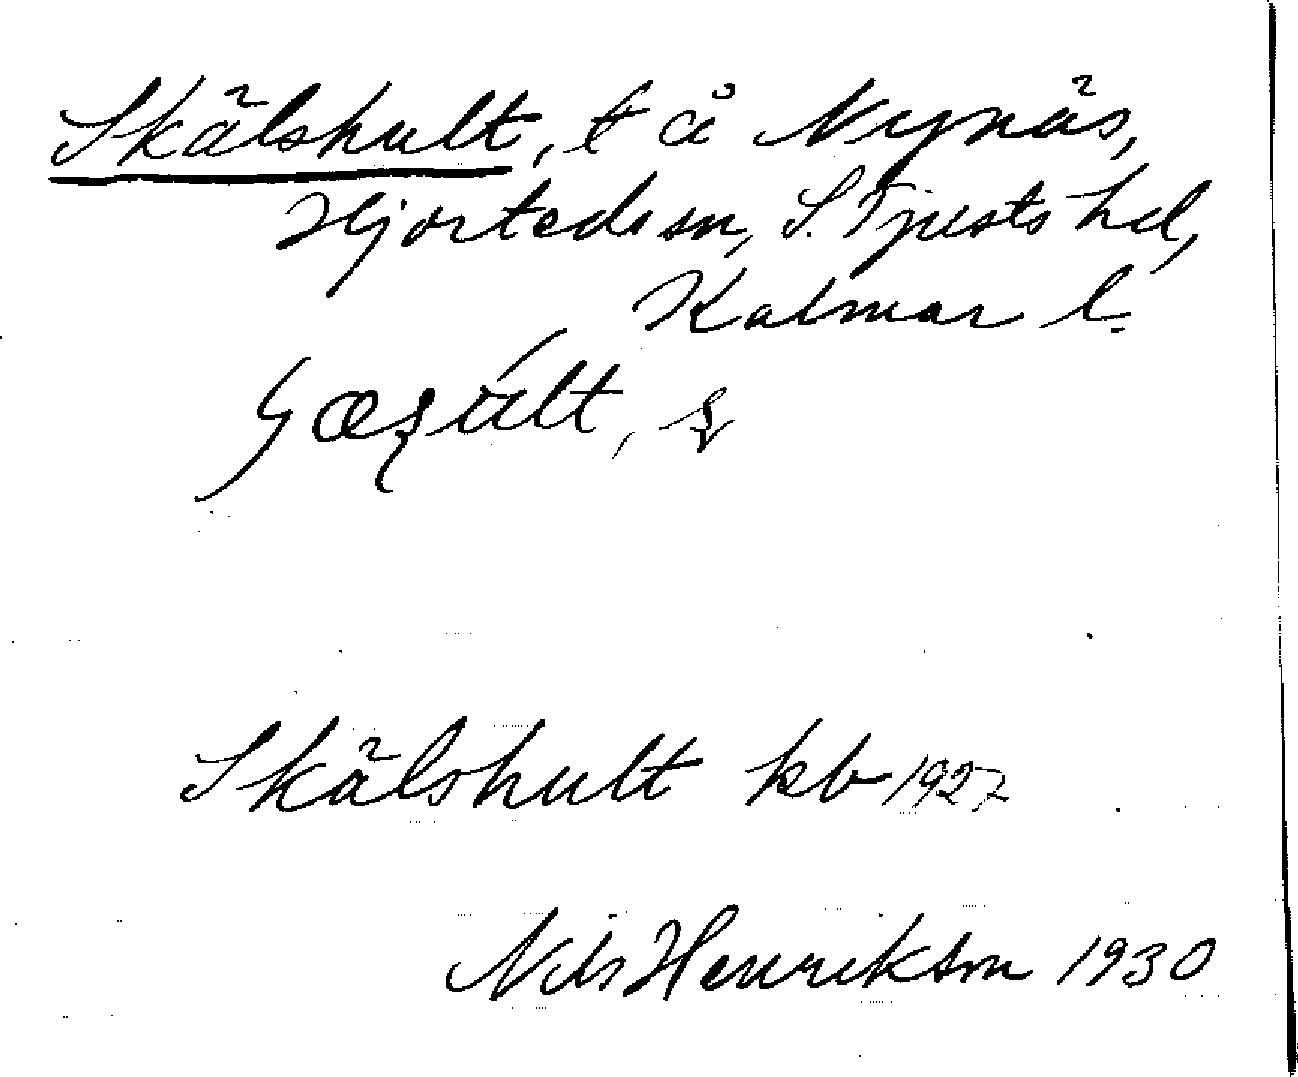 Skälshult, t å Nynäs,
Hjorteds sn, S. Tjusts hd,
Kalmar l.
Skälshult kb 1927
Nils Henrikson 1930